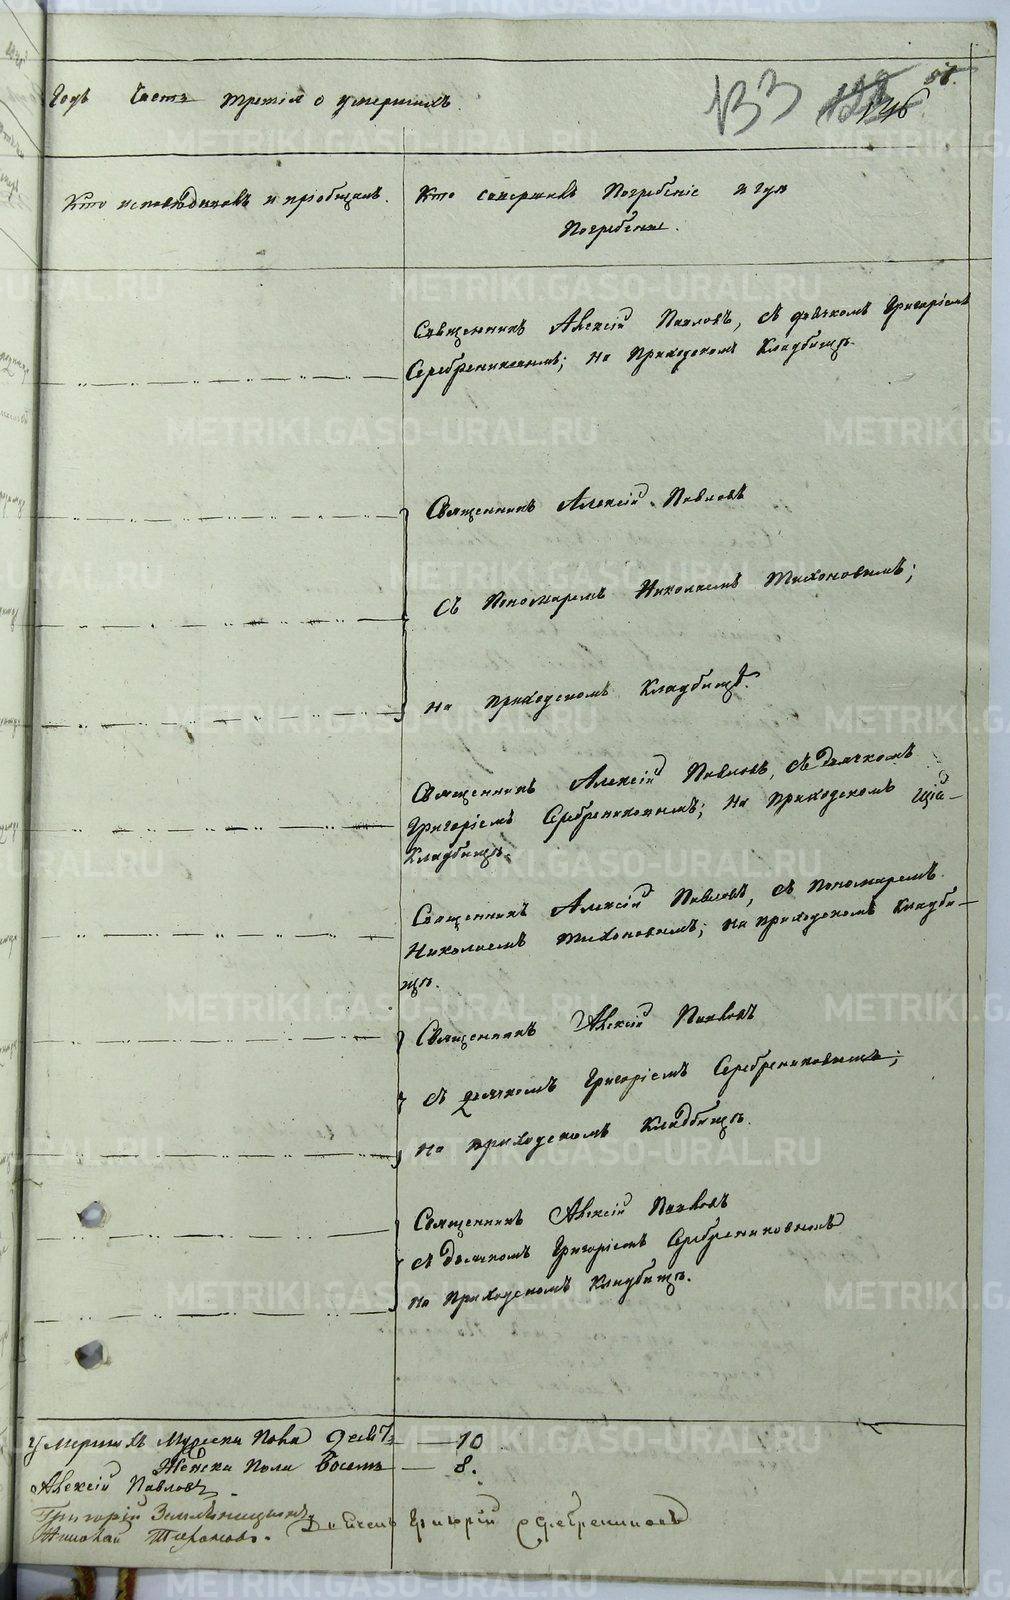 Годъ Часть третія о умершихъ.
133 58.
146
Кто исповѣдывалъ и пріобщалъ.
Кто совершалъ Погребеніе и гдѣ
Погребены.
Священникъ Алексій Павловъ, съ дьячкомъ Григоріемъ
Серебрениковымъ; на Приходскомъ Кладбищѣ.
Священникъ Алексій Павловъ
Съ Пономаремъ Николаемъ Тихоновымъ;
на приходскомъ Кладбищѣ.
Священникъ Алексій Павловъ, съ дьячкомъ
Григоріемъ Серебрениковымъ; на Приходскомъ
Кладбищѣ.
Священникъ Алексій Павловъ, съ Пономаремъ
Николаемъ Тихоновымъ; на приходскомъ Кладби-
щѣ.
Священникъ Алексій Павловъ
съ дьячкомъ Григоріемъ Серебрениковымъ;
на приходскомъ Кладбищѣ.
Священникъ Алексій Павловъ
съ дьячкомъ Григоріемъ Серебрениковымъ
на Приходскомъ Кладбищѣ.
Умершихъ Мужеска Пола — 10
Женска Пола Восемь — 8.
Алексій Павловъ
Григорій
Николай Тихоновъ. Григорій Серебрениковъ
METRIKI.GASO-URAL.RU